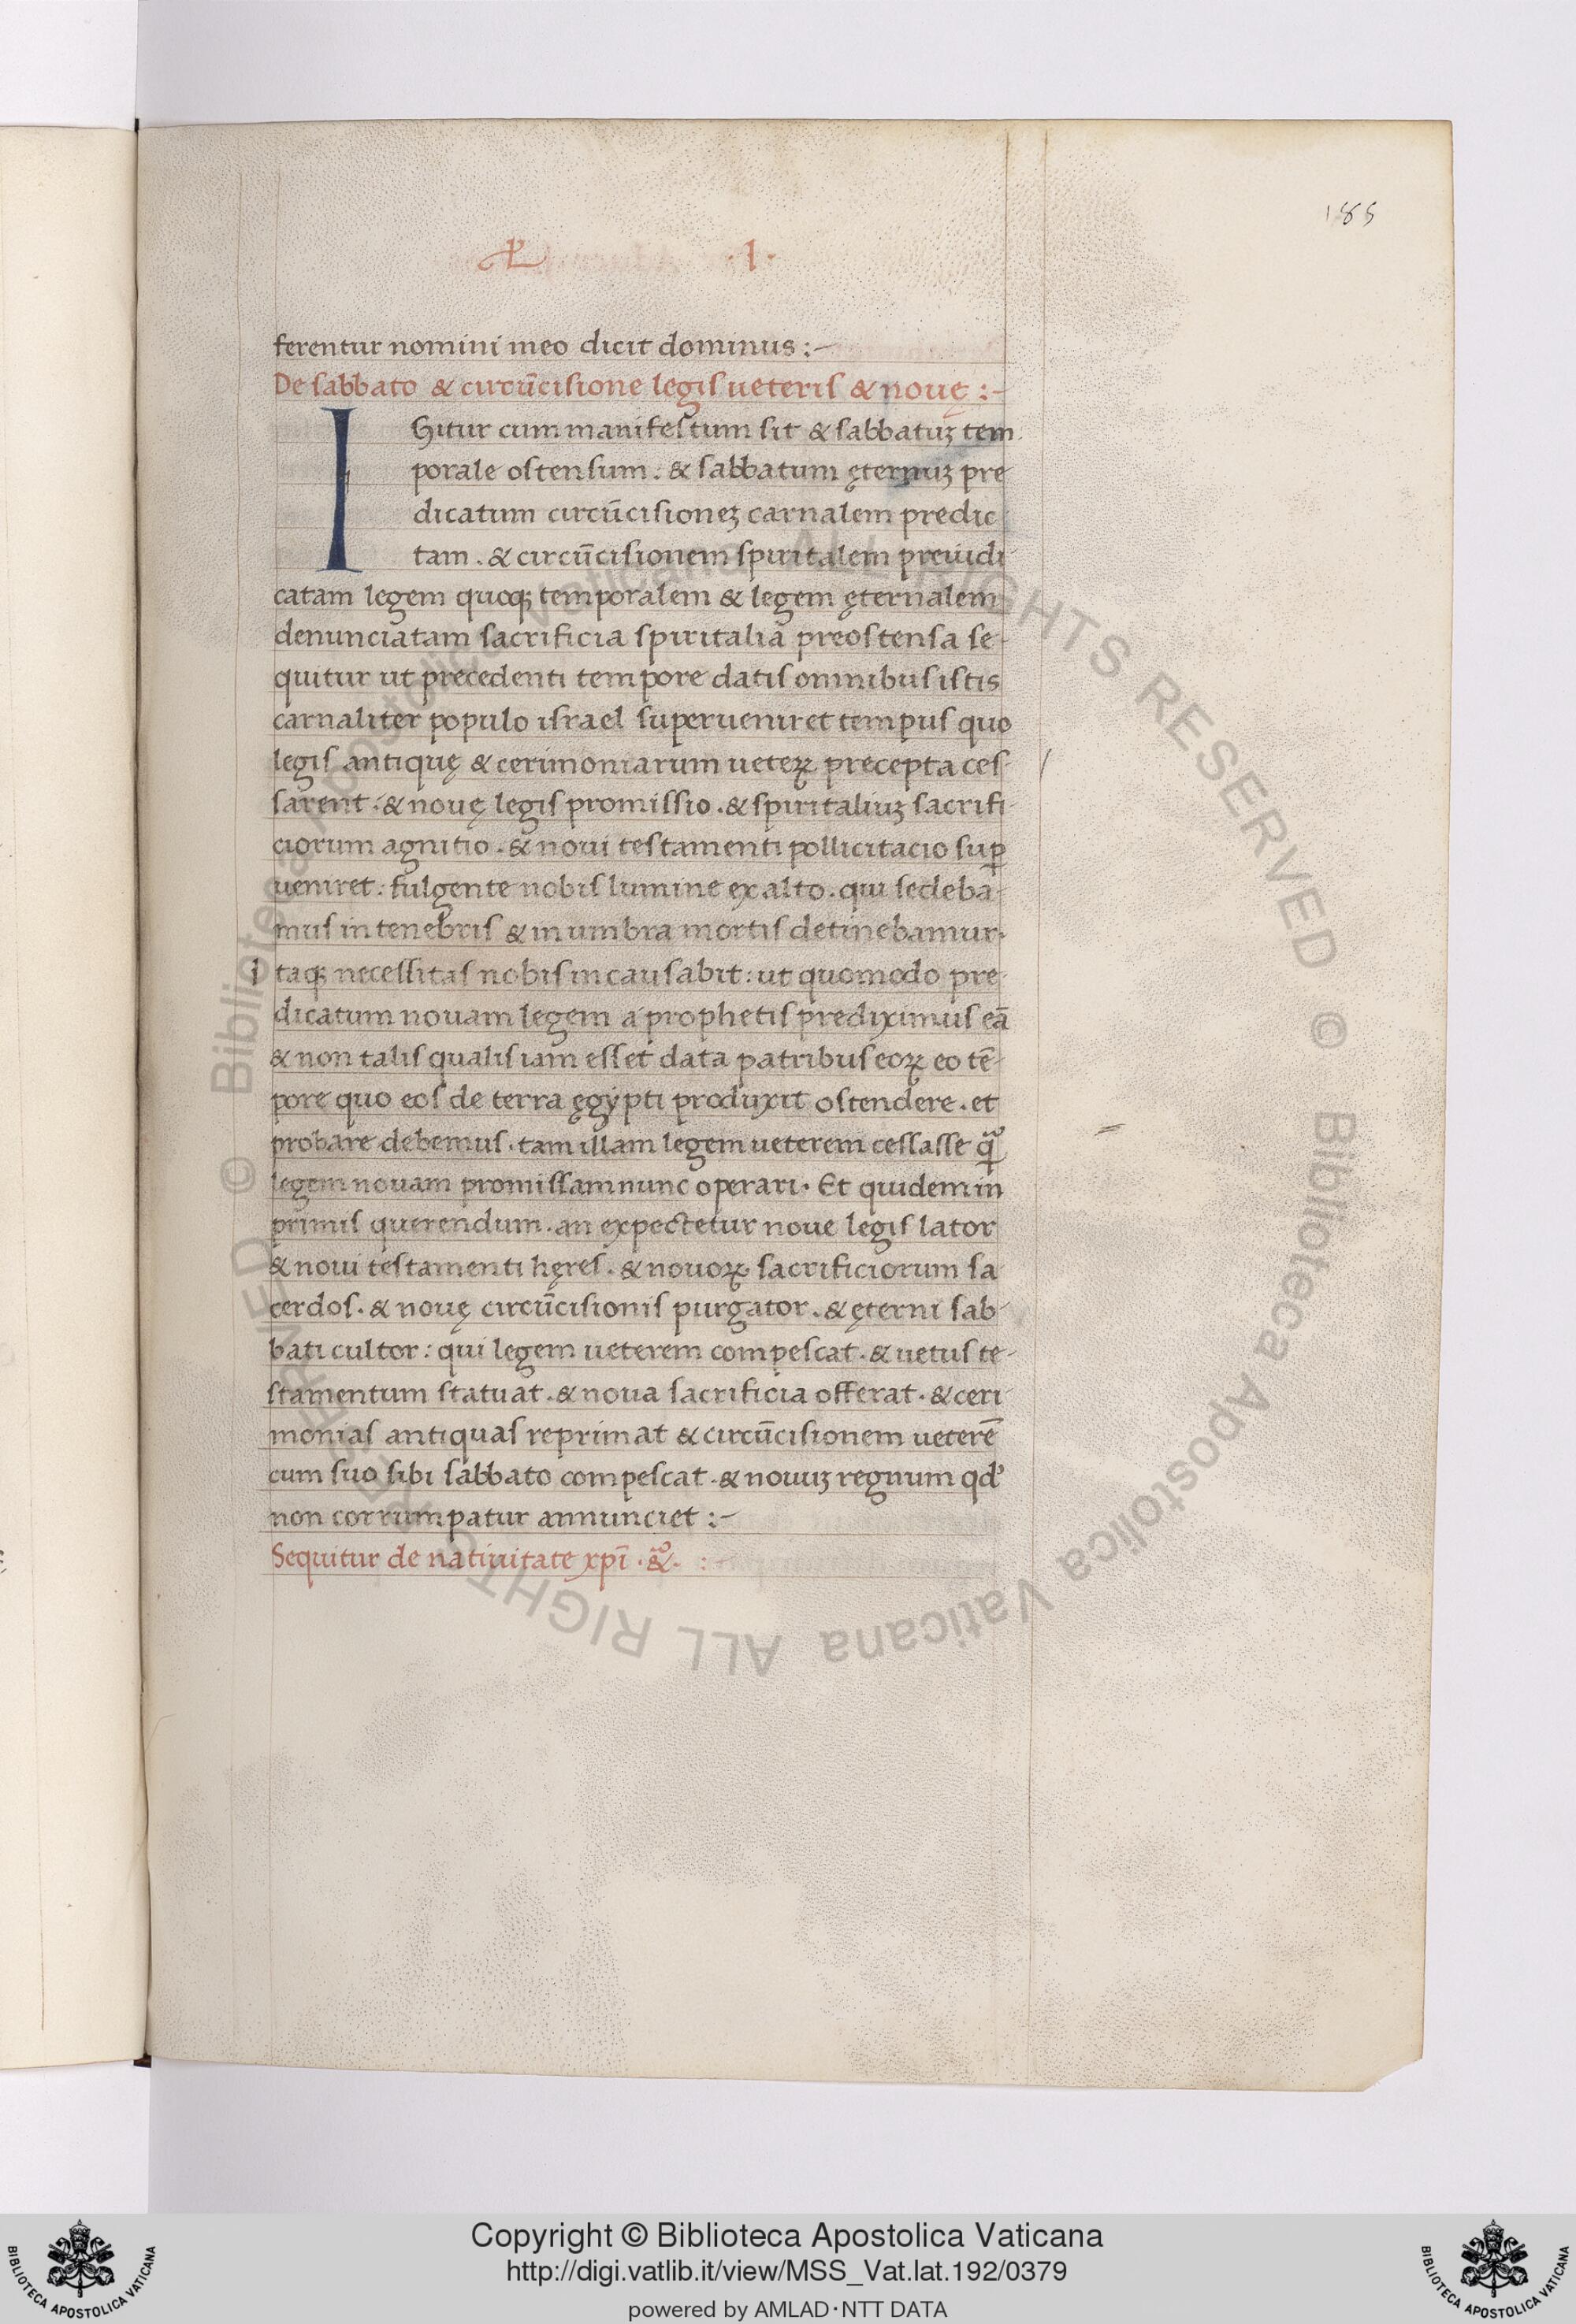 185
·I·
ferentur nomini meo dicit dominus :-
De sabbato & circūcisione legis ueteris & nouę :-
IGitur cum manifestum sit & sabbatuꝫ tem
porale ostensum . & sabbatum ęternuꝫ pre
dicatum circūcisioneꝫ carnalem predic
tam . & circūcisionem spiritalem preiudi
catam legem quoqꝫ temporalem & legem ęternalem
denunciatam sacrificia spiritalia preostensa se-
quitur ut precedenti tempore datis omnibus istis
carnaliter populo israel superueniret tempus quo
legis antiquę & cerimoniarum ueteꝝ precepta ces-
sarent : & nouę legis promissio . & spiritaliuꝫ sacrifi-
ciorum agnitio . & noui testamenti pollicitacio suꝑ
ueniret : fulgente nobis lumine ex alto . qui sedeba-
mus in tenebris & in umbra mortis detinebamur.
i taqꝫ necessitas nobis incausabit : ut quomodo pre-
dicatum nouam legem a prophetis prediximus eā
& non talis qualis iam esset data patribus eoꝝ eo tē-
pore quo eos de terra ęgypti produxit ostendere . et
probare debemus . tam illam legem ueterem cessasse qᷓ
legem nouam promissam nunc operari . Et quidem in
primis querendum . an expectetur noue legis lator
& noui testamenti hęres . & nouoꝝ sacrificiorum sa
cerdos . & nouę circūcisionis purgator . & ęterni sab-
bati cultor : qui legem ueterem compescat . & uetus te-
stamentum statuat . & noua sacrificia offerat . & ceri-
monias antiquas reprimat & circūcisionem ueterē
cum suo sibi sabbato compescat . & nouuꝫ regnum qd'
non corrumpatur annunciet :-
Sequitur de natiuitate xpī .
© Biblioteca Apostolica Vaticana ALL RIGHTS RESERVED © Biblioteca Apostolica Vaticana ALL RIGHTS RESERVED
Copyright © Biblioteca Apostolica Vaticana
http://digi.vatlib.it/view/MSS_Vat.lat.192/0379
powered by AMLAD·NTT DATA
BIBLIOTECA APOSTOLICA VATICANA
BIBLIOTECA APOSTOLICA VATICANA